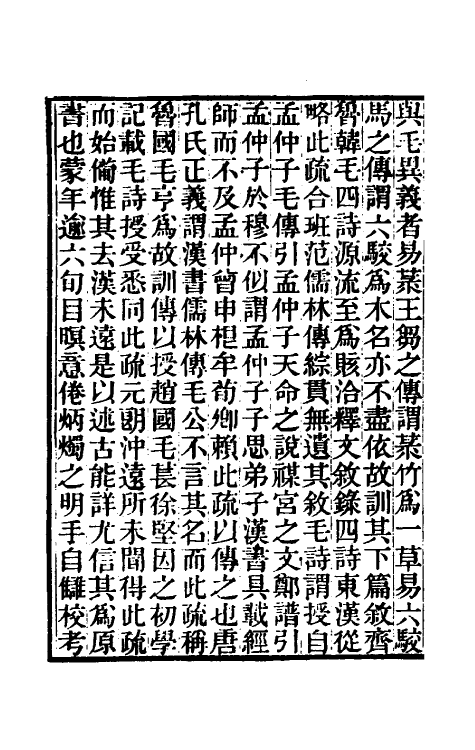 與毛異義者易菉王芻之傳謂菉竹爲一草易六駮
馬之傳謂六駮爲木名亦不盡依故訓其下篇敘齊
魯韓毛四詩源流至爲賅洽釋文敘錄四詩東漢從
略此疏合班范儒林傳綜貫無遺其敘毛詩謂授自
孟仲子毛傳引孟仲子天命之說禖宮之文鄭譜引
孟仲子於穆不似謂孟仲子子思弟子漢書具載經
師而不及孟仲曾申根牟荀卿賴此疏以傳之也唐
孔氏正義謂漢書儒林傳毛公不言其名而此疏稱
魯國毛亨爲故訓傳以授趙國毛萇徐堅因之初學
記載毛詩授受悉同此疏元朗沖遠所未聞得此疏
而始備惟其去漢未遠是以述古能詳尤信其爲原
書也蒙年逾六旬目暝意倦炳燭之明手自讎校考